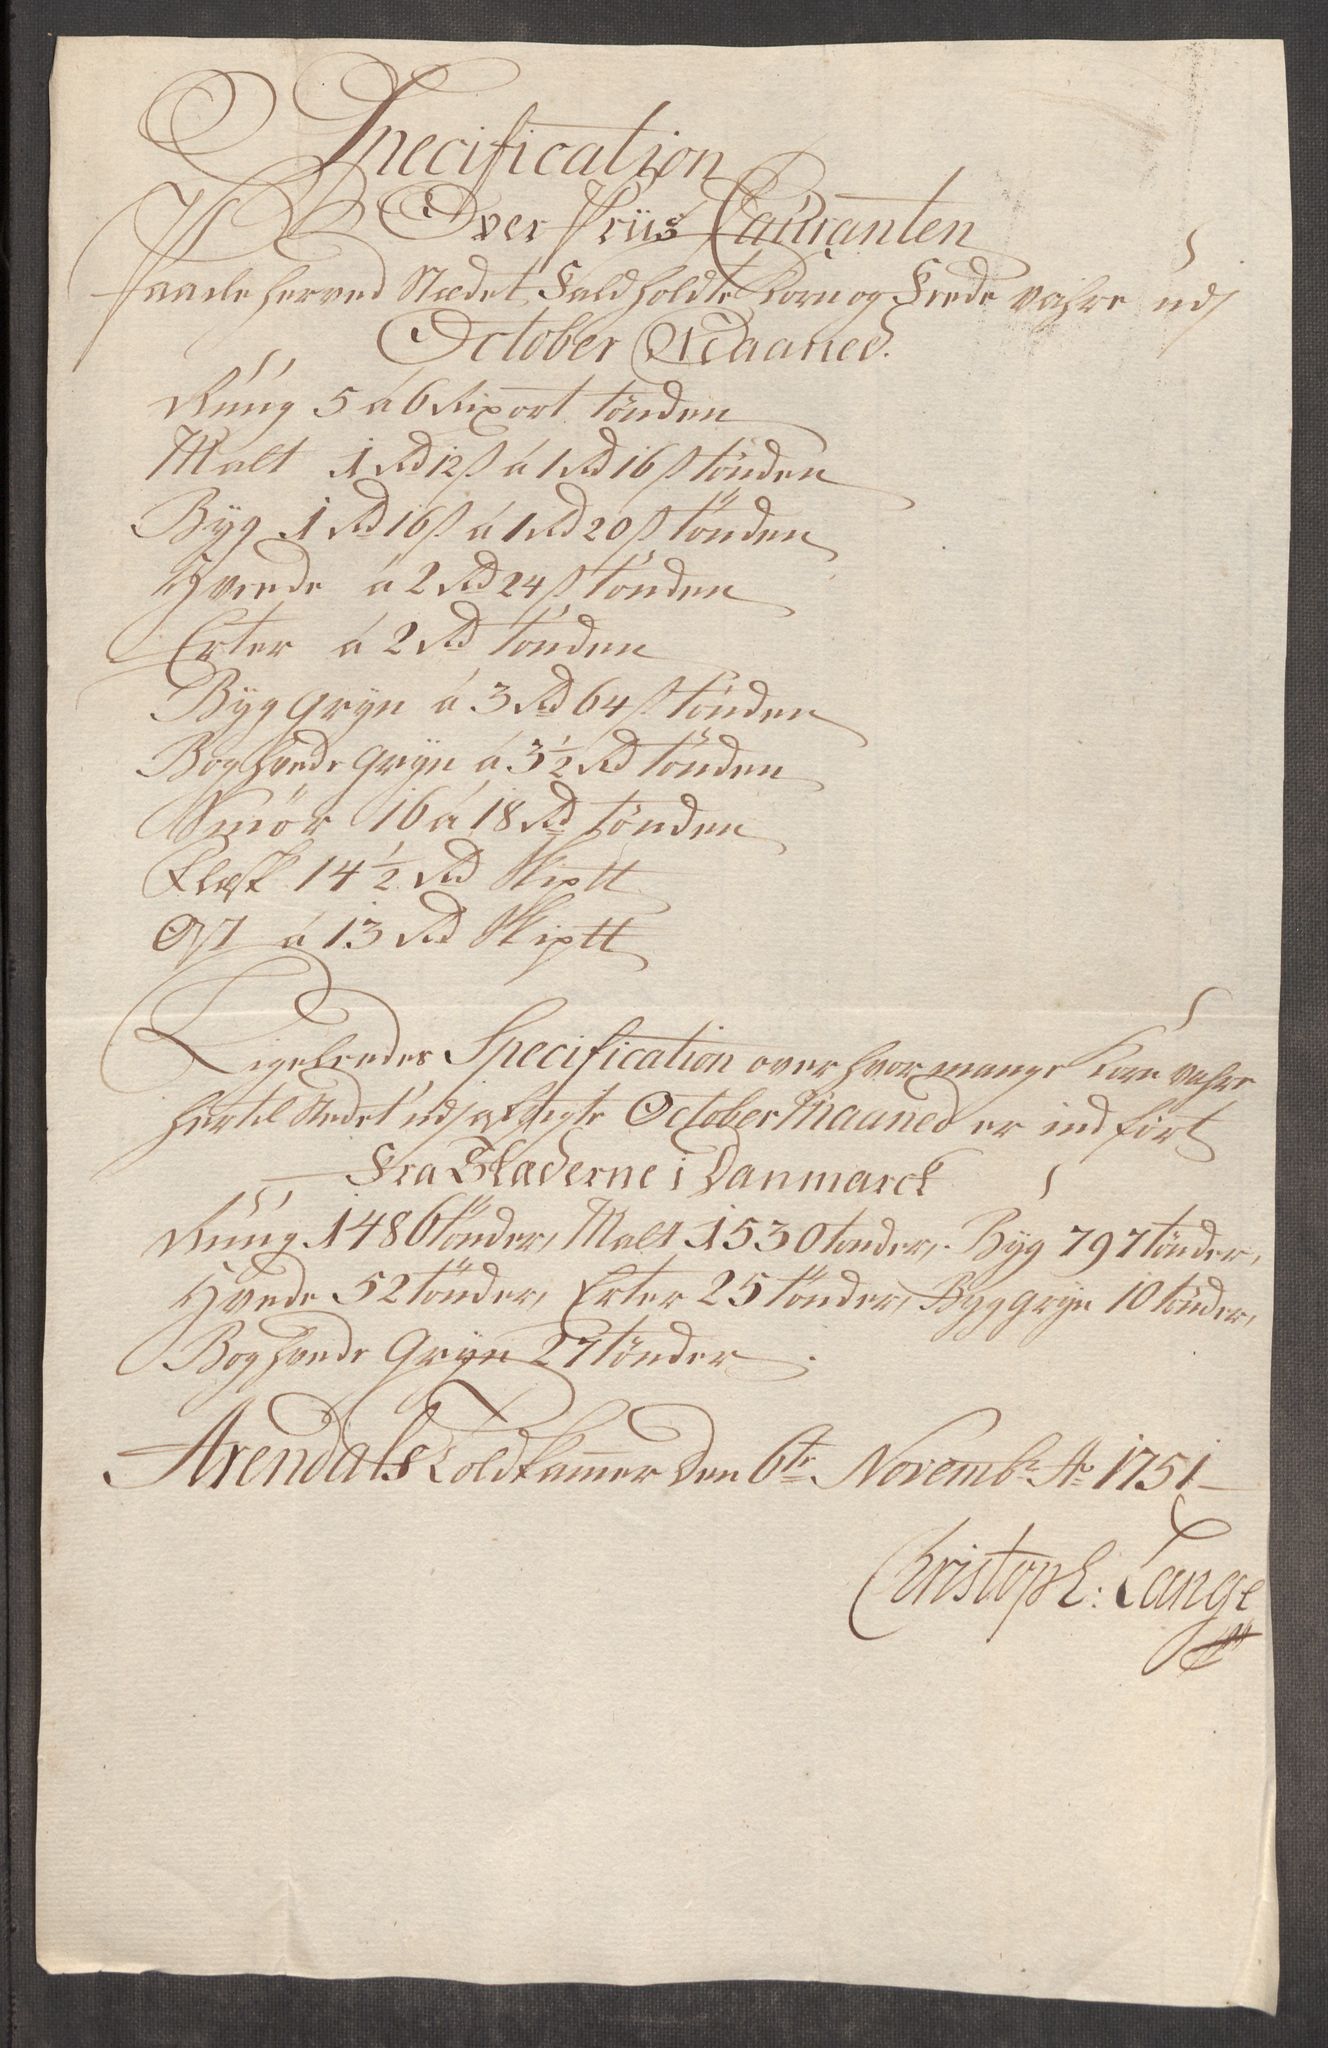 Specification
Over Priis Couranten
Paa de her ved Stædet Faldholdte Korn og Fede vahre udj
October Maaned.
Rúug 5 á 6 Rixort tönden
Malt 1 Rd 12 s á 1 Rd 16 s tönden
Byg 1 Rd 16 s á 1 Rd 20 s tönden
Hvede á 2 Rd 24 s tönden
Erter á 2 Rd tönden
Byg gryn á 3 Rd 64 s tönden
Boghvede gryn á 3½ Rd tönden
Smör 16 á 18 Rd tönden
Flæsk 14½ Rd Skiptt
Ost á 13 Rd Skiptt
Ligeleedes Specification over hvor mange Korn vahre
hertil Stedet udj October Maaned er ind fört
Fra Stæderne i Danmarck
Rúug 1486 tönder, Malt 1530 tönder, Byg 797 tönder,
Hvede 52 tönder, Erter 25 tönder, Byg gryn 10 tönder,
Boghvede Gryn 27 tönder.
Arendals Toldkammer den 6te Novembr Ao 1751
Christoph: Lange